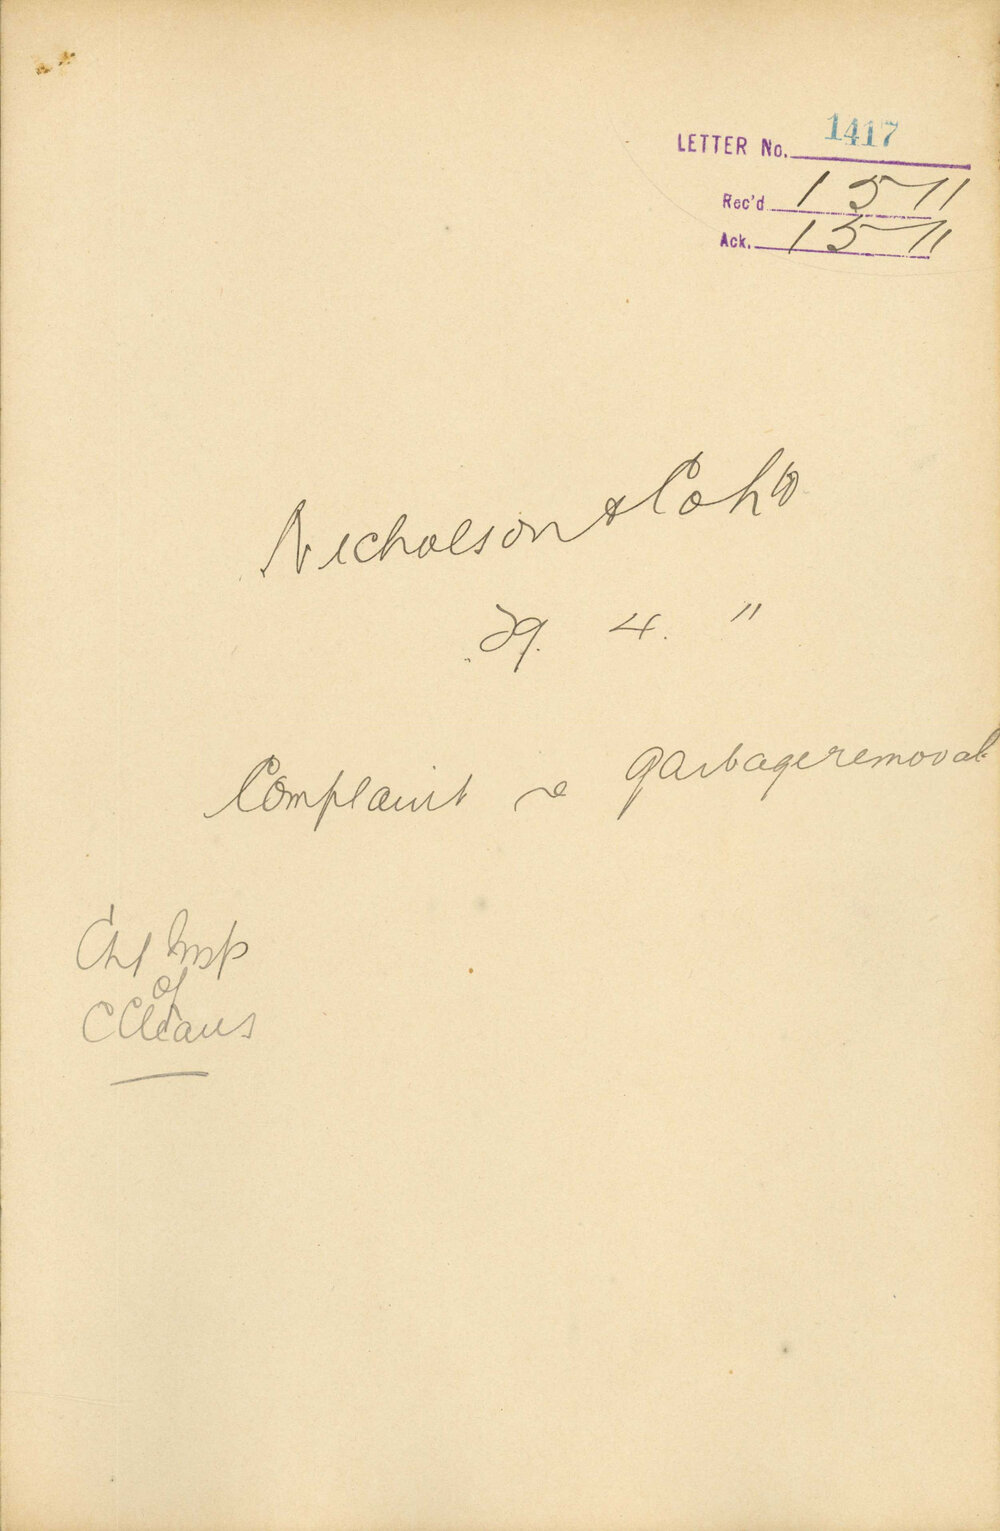 LETTER No. 1417
Rec'd 1 5 11
Ack. 1 5 11
Nicholson & Co
29. 4. "
Complaint re garbage removal
Chf Insp
of
C Cleans